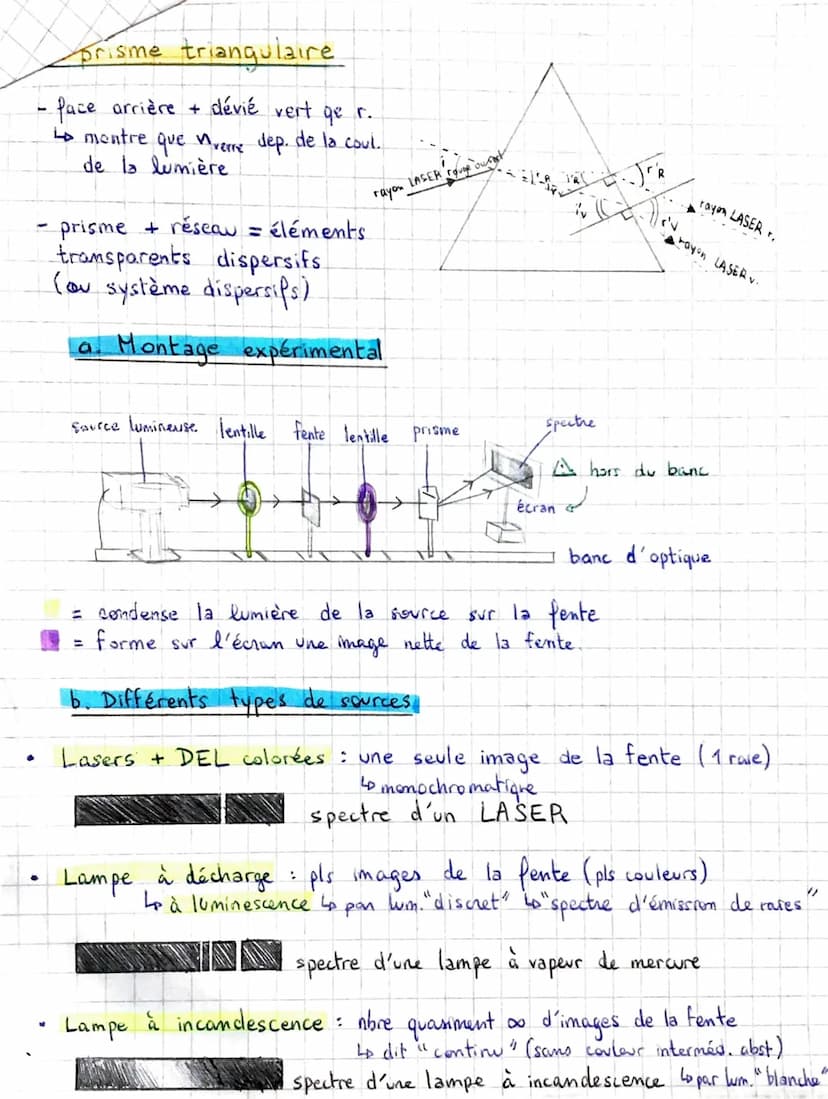 prisme triangulaire
- face arrière + dévié vert qe r.
↳ montre que n verre dep. de la coul.
de la lumière
- prisme + réseau = éléments
transparents dispersifs
(ou système dispersifs)
rayon LASER rouge
i
i'R
r'R
i'v
r'v
rayon LASER r.
rayon LASER v.
a. Montage expérimental
source lumineuse
lentille
fente
lentille
prisme
spectre
⚠ hors du banc
écran
banc d'optique
= condense la lumière de la source sur la fente
= forme sur l'écran une image nette de la fente.
b. Différents types de sources
• Lasers + DEL colorées : une seule image de la fente (1 raie)
↳ monochromatique
spectre d'un LASER
• Lampe à décharge : pls images de la fente (pls couleurs)
↳ à luminescence ↳ par lum. "discret" ↳ "spectre d'émission de raies"
spectre d'une lampe à vapeur de mercure
• Lampe à incandescence : nbre quasiment ∞ d'images de la fente
↳ dit "continu" (sans couleur interméd. abst)
spectre d'une lampe à incandescence ↳ par lum. "blanche"